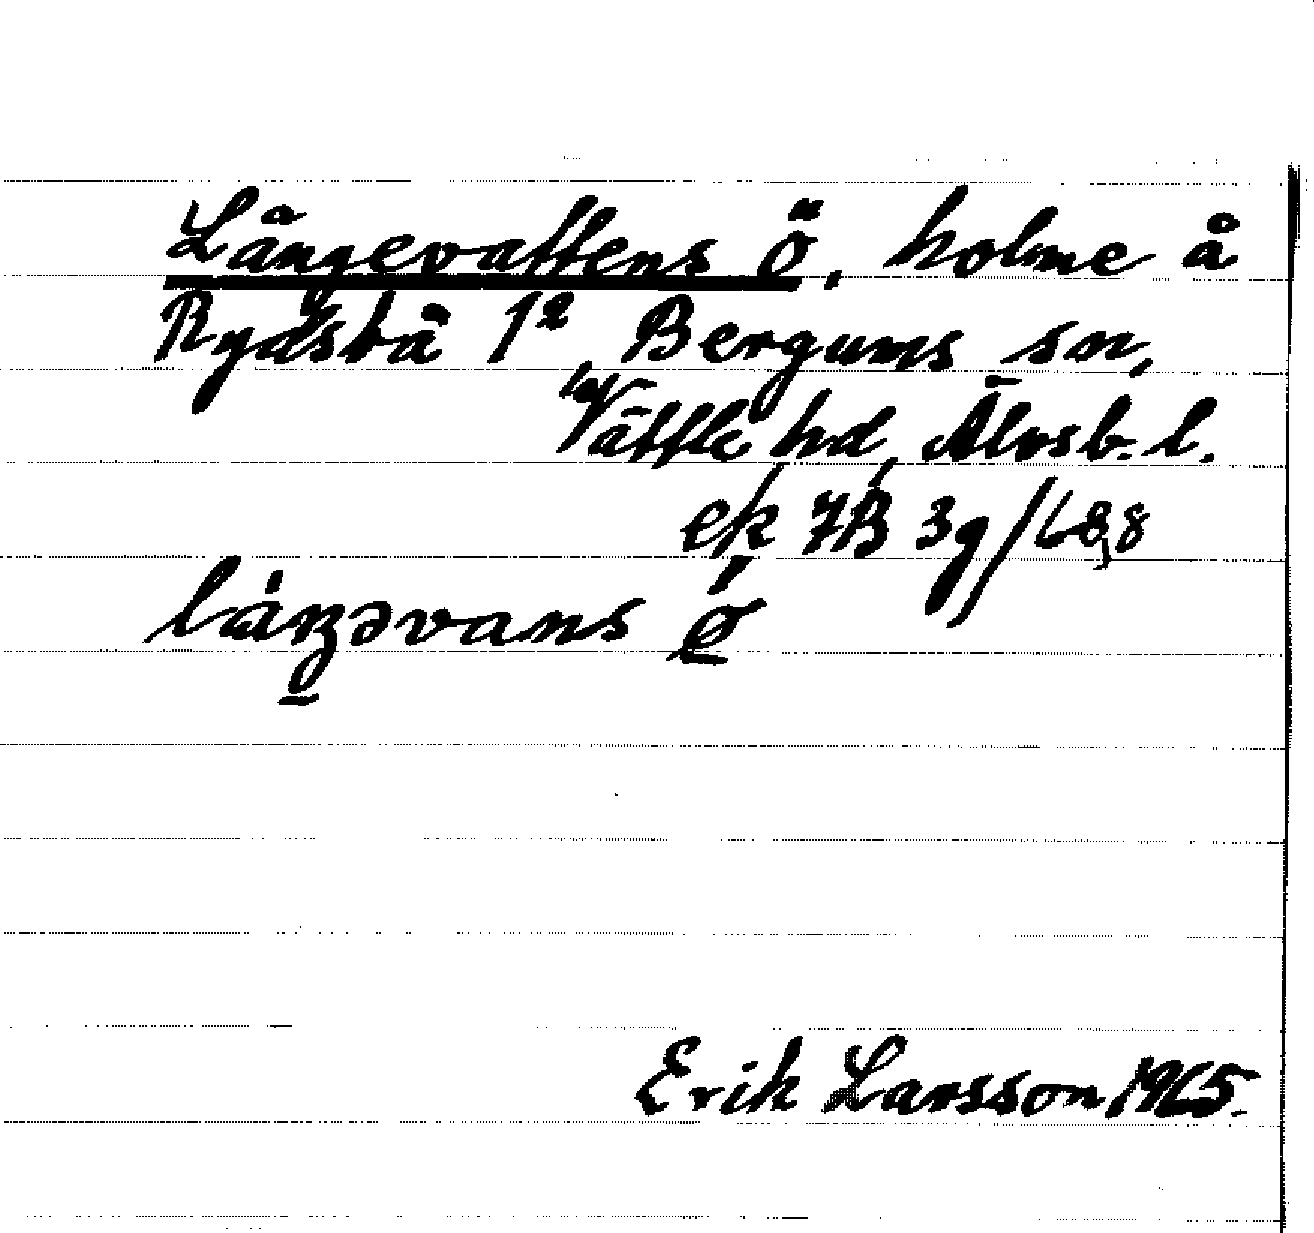 Långevattens ö, holme å
Rydsbå 1² Bergums sn,
Vättle hd, Älvsb. l.
ek 7B 3g/68,8
ö
Erik Larsson 1965.